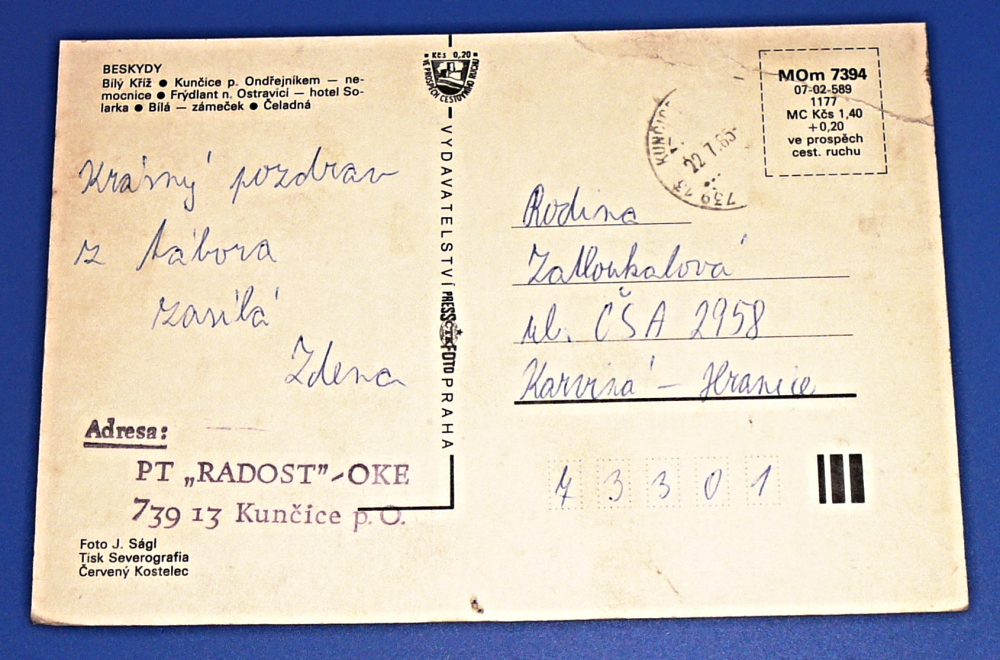 BESKYDY
Bílý Kříž ● Kunčice p. Ondřejníkem — ne-
mocnice ● Frýdlant n. Ostravicí — hotel So-
larka ● Bílá — zámeček ● Čeladná
Krásný pozdrav
z tábora
zasílá
Zdena
Adresa:
PT „RADOST”-OKE
739 13 Kunčice p. O.
Foto J. Ságl
Tisk Severografia
Červený Kostelec
Kčs 0,20
VE PROSPĚCH CESTOVNÍHO RUCHU
VYDAVATELSTVÍ PRESSFOTO PRAHA
ČTK
739 13 KUNČICE
22.7.85-
MOm 7394
07-02-589
1177
MC Kčs 1,40
+0,20
ve prospěch
cest. ruchu
Rodina
Zatloukalová
ul. ČSA 2958
Karviná - Hranice
7 3 3 0 1